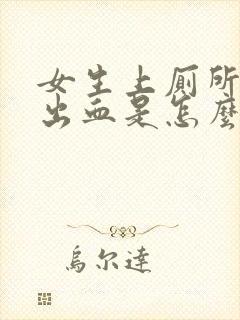 女生上厕所
出血是怎麽
烏尔達